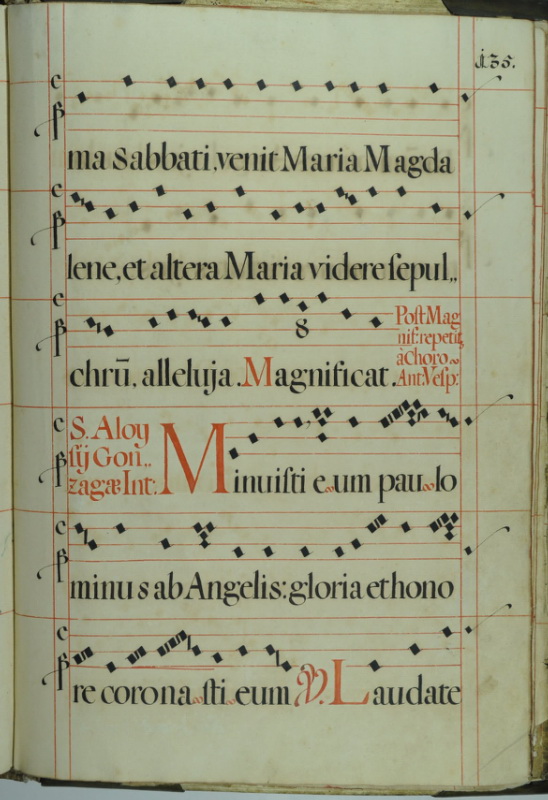 j.35.
ma Sabbati, venit Maria Magda
lene, et altera Maria videre ſepul,,
8
chrū, alleluja. Magnificat.
Poſt Mag
nif: repetit
à choro
Ant: Veſp:
S. Aloy
ſij Gon,,
zagæ Int:
Minuiſti eum paulo
minus ab Angelis: gloria et hono
re coronaſti eum V. Laudate